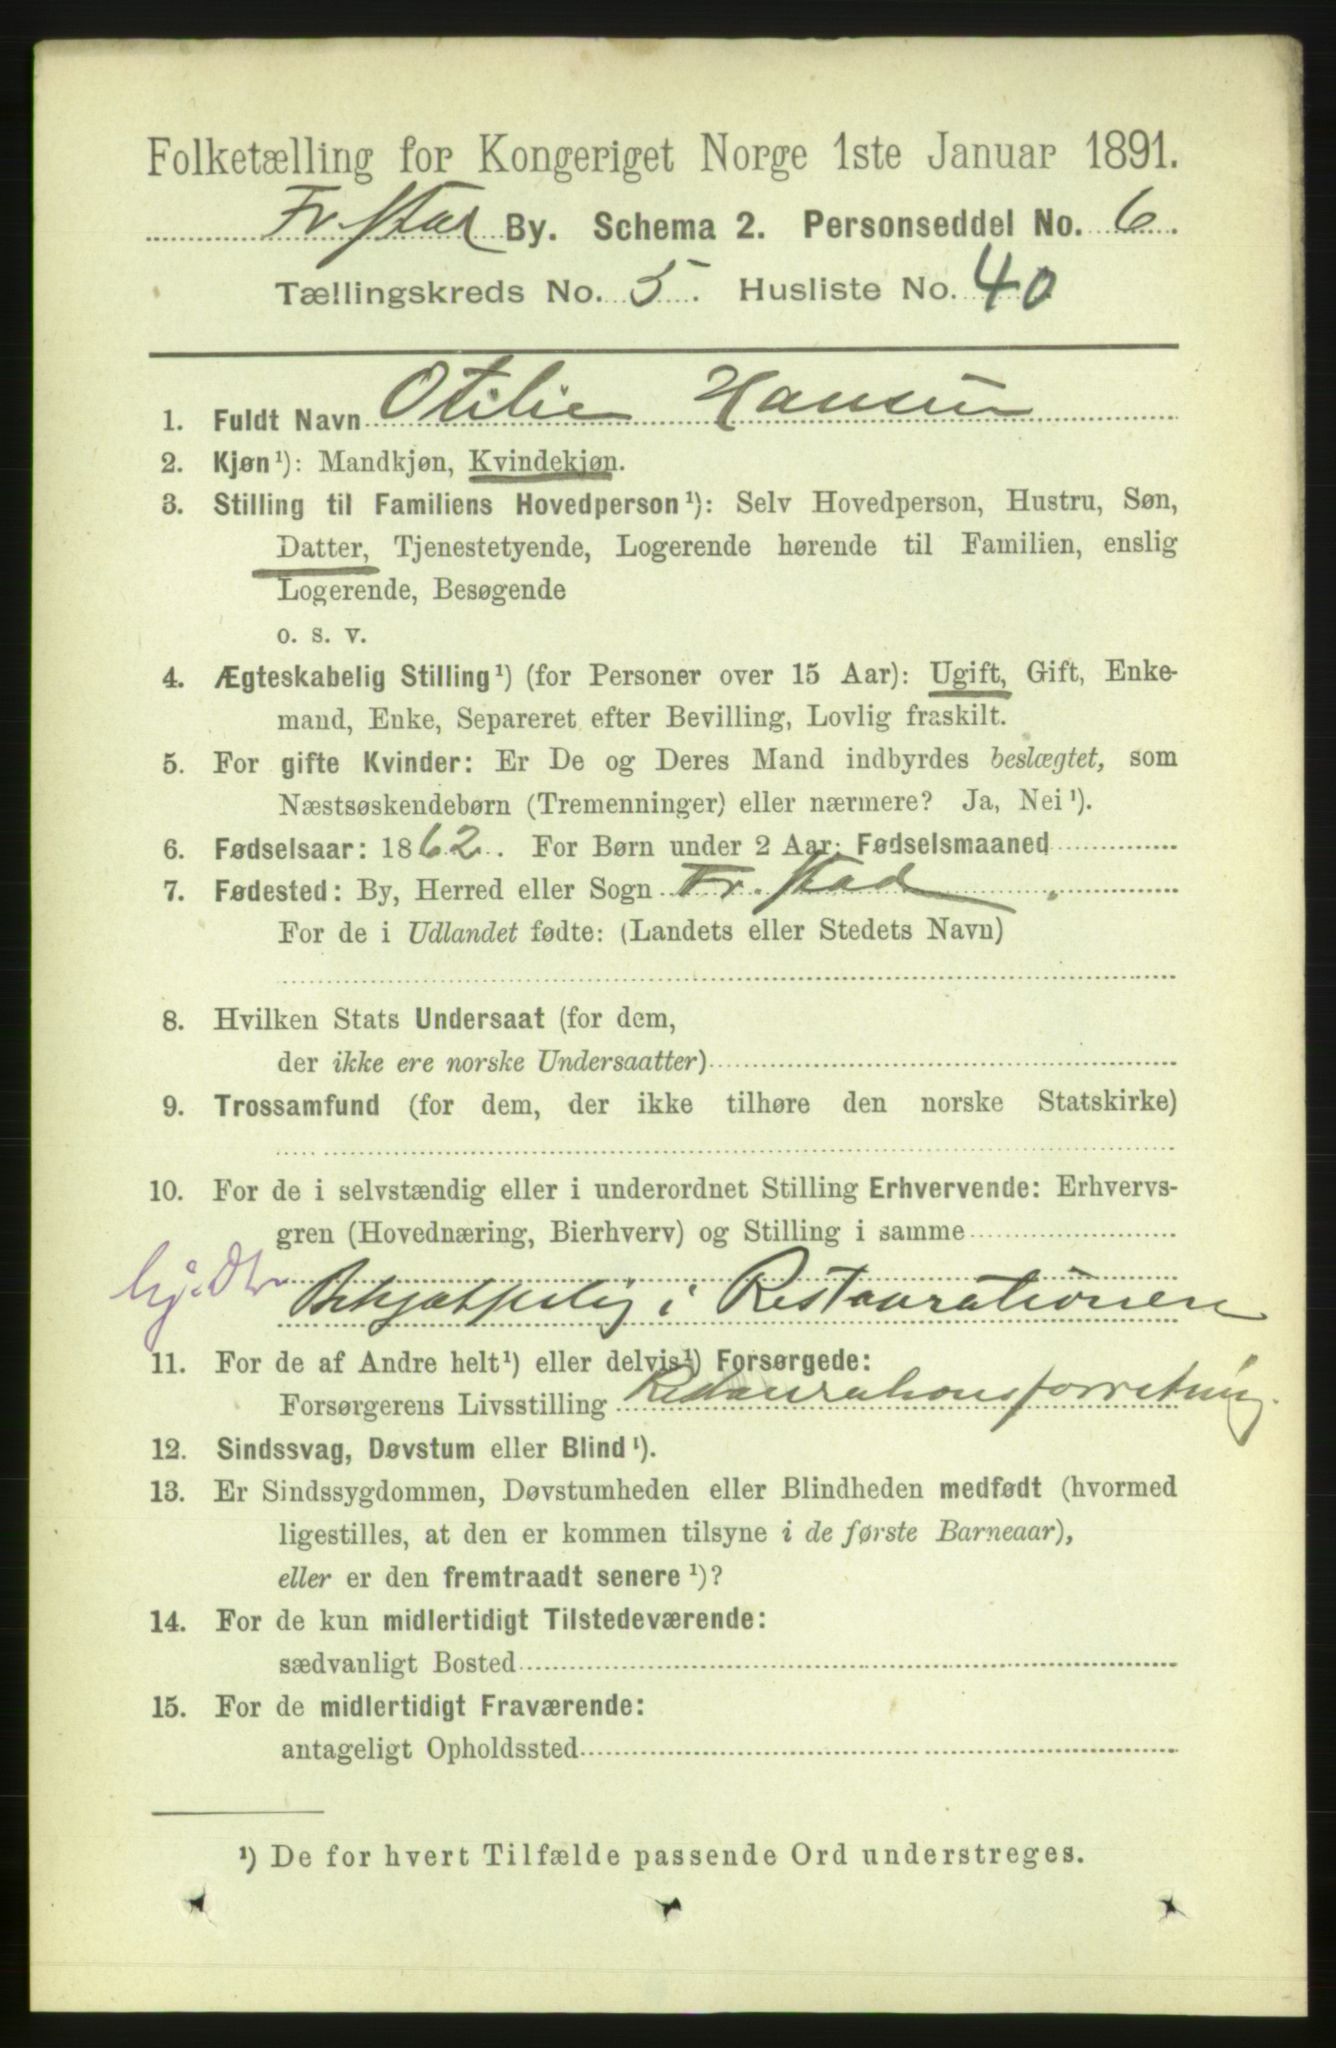 Folketælling for Kongeriget Norge 1ste Januar 1891.
Fr.stad By. Schema 2. Personseddel No. 6.
Tællingskreds No. 5. Husliste No. 40
1. Fuldt Navn Otilie Hansen
2. Kjøn¹): Mandkjøn, Kvindekjøn.
3. Stilling til Familiens Hovedperson¹): Selv Hovedperson, Hustru, Søn,
Datter, Tjenestetyende, Logerende hørende til Familien, enslig
Logerende, Besøgende
o. s. v.
4. Ægteskabelig Stilling¹) (for Personer over 15 Aar): Ugift, Gift, Enke-
mand, Enke, Separeret efter Bevilling, Lovlig fraskilt.
5. For gifte Kvinder: Er De og Deres Mand indbyrdes beslægtet, som
Næstsøskendebørn (Tremenninger) eller nærmere? Ja, Nei¹).
6. Fødselsaar: 1862. For Børn under 2 Aar: Fødselsmaaned
7. Fødested: By, Herred eller Sogn Fr.stad
For de i Udlandet fødte: (Landets eller Stedets Navn)
8. Hvilken Stats Undersaat (for dem,
der ikke ere norske Undersaatter)
9. Trossamfund (for dem, der ikke tilhøre den norske Statskirke)
10. For de i selvstændig eller i underordnet Stilling Erhvervende: Erhvervs-
gren (Hovednæring, Bierhverv) og Stilling i samme
Behjælpelig i Restaurationen
11. For de af Andre helt¹) eller delvis¹) Forsørgede:
Forsørgerens Livsstilling Restaurationsforretning.
12. Sindssvag, Døvstum eller Blind¹).
13. Er Sindssygdommen, Døvstumheden eller Blindheden medfødt (hvormed
ligestilles, at den er kommen tilsyne i de første Barneaar),
eller er den fremtraadt senere¹)?
14. For de kun midlertidigt Tilstedeværende:
sædvanligt Bosted
15. For de midlertidigt Fraværende:
antageligt Opholdssted
¹) De for hvert Tilfælde passende Ord understreges.